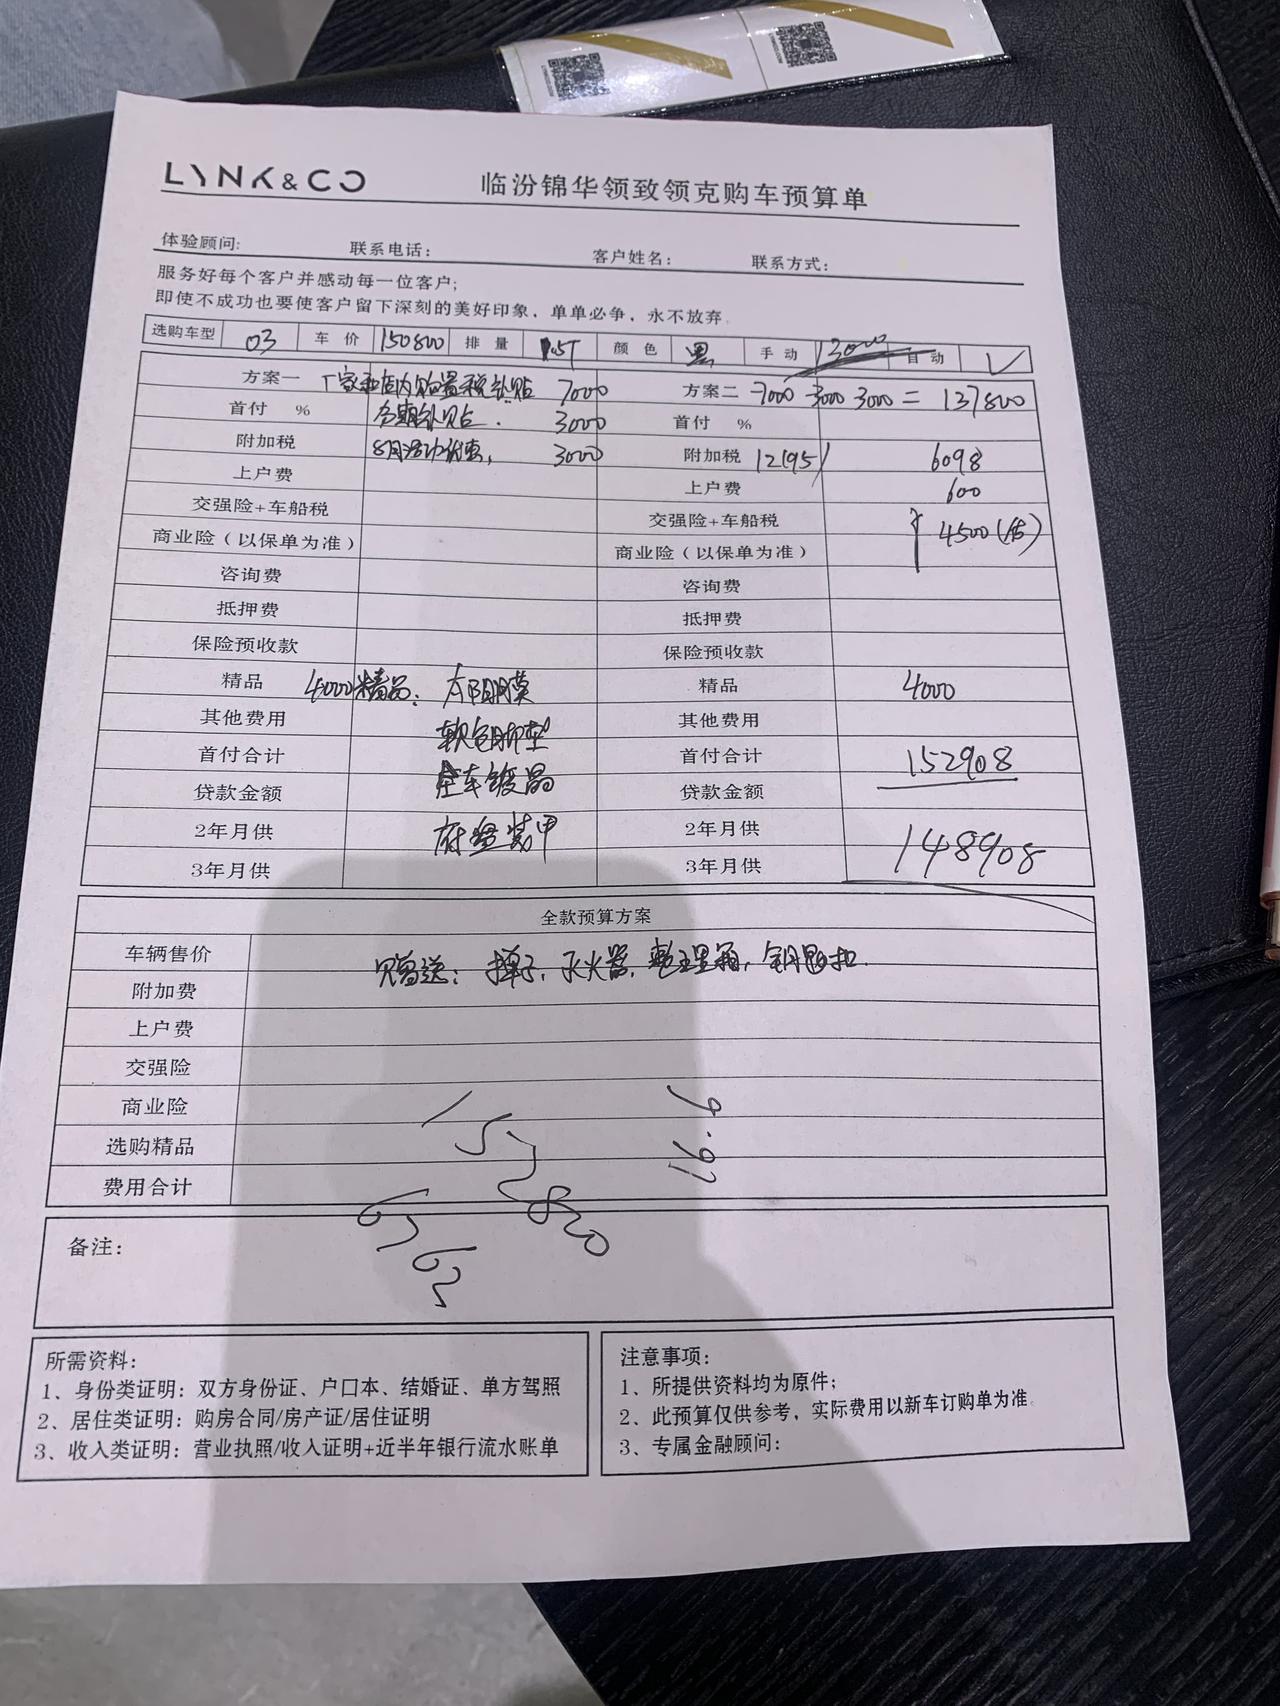 LYNK & CO 临汾锦华领致领克购车预算单
体验顾问: 联系电话: 客户姓名: 联系方式:
服务好每个客户并感动每一位客户;
即使不成功也要使客户留下深刻的美好印象，单单必争，永不放弃.
选购车型 03 车价 150800 排量 1.5T 颜色 黑 手动 自动 ✓
方案一 厂家和店内购置税补贴 7000 方案二 -7000 -3000 3000 = 137800
首付 % 金融补贴. 3000 首付 %
附加税 8月活动优惠, 3000 附加税 12195/ 6098
上户费 上户费 600
交强险+车船税 交强险+车船税 4500(估)
商业险（以保单为准） 商业险（以保单为准）
咨询费 咨询费
抵押费 抵押费
保险预收款 保险预收款
精品 4000精品: 太阳膜 精品 4000
其他费用 软包脚垫 其他费用
首付合计 全车镀晶 首付合计 152908
贷款金额 贷款金额
2年月供 底盘装甲 2年月供 148908
3年月供 3年月供
全款预算方案
车辆售价 赠送: 掸子, 灭火器, 整理箱, 钥匙扣.
附加费
上户费
交强险
商业险
选购精品 152820
费用合计
备注:
所需资料:
1、身份类证明: 双方身份证、户口本、结婚证、单方驾照
2、居住类证明: 购房合同/房产证/居住证明
3、收入类证明: 营业执照/收入证明+近半年银行流水账单
注意事项:
1、所提供资料均为原件;
2、此预算仅供参考，实际费用以新车订购单为准.
3、专属金融顾问: